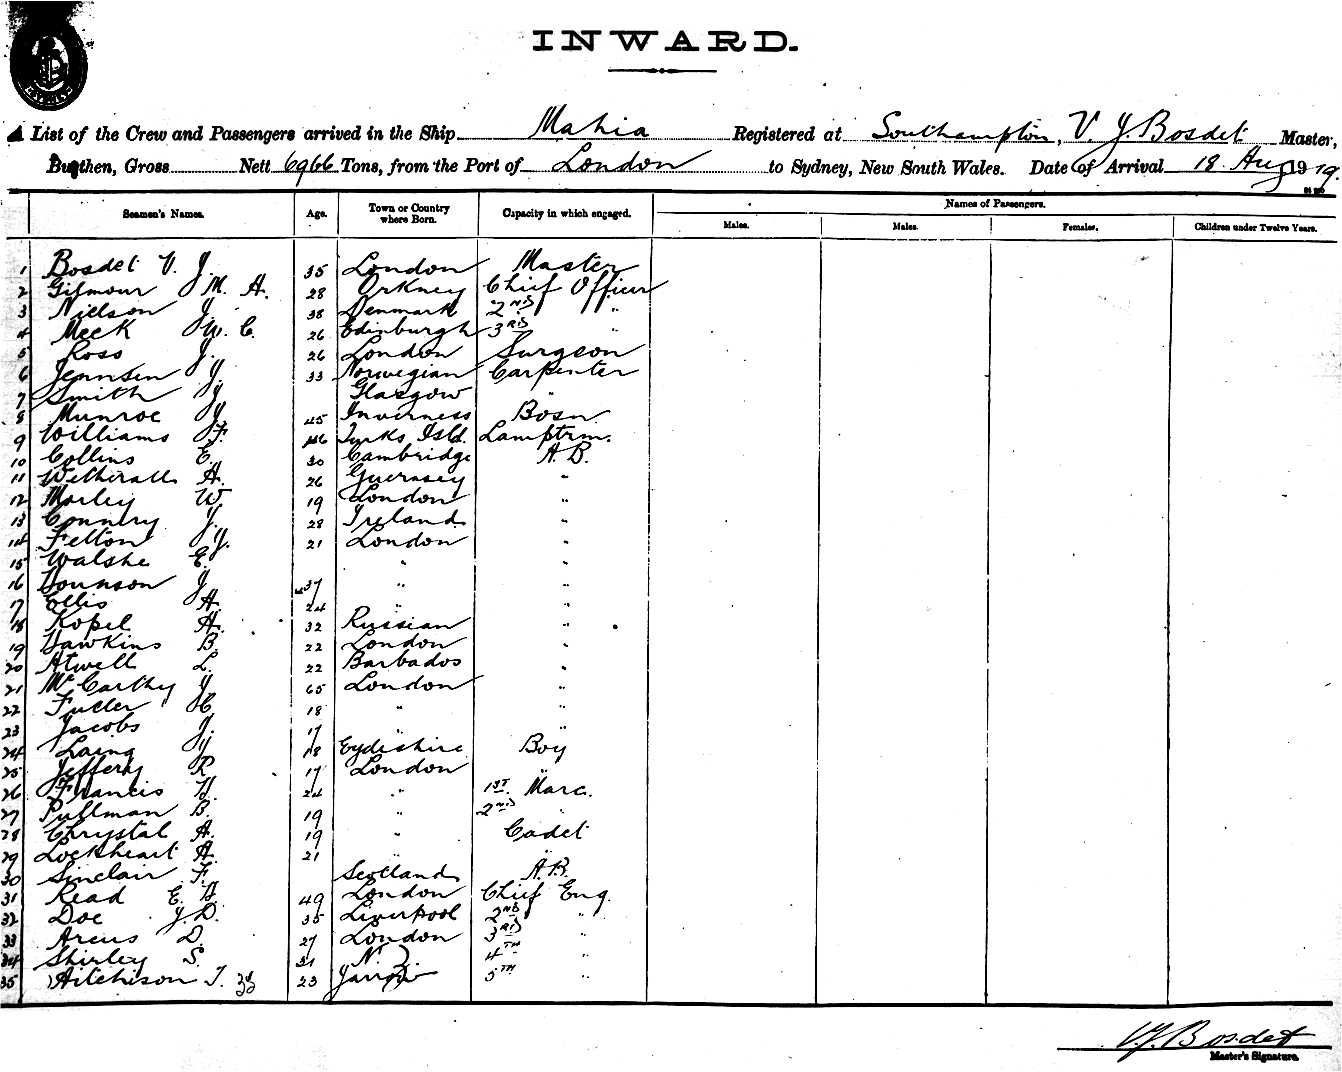 INWARD.
List of the Crew and Passengers arrived in the Ship Mahia Registered at Southampton, V. J. Bosdet Master,
Burthen, Gross Nett 6966 Tons, from the Port of London to Sydney, New South Wales. Date of Arrival 18 Aug 1919.
Seamen's Names. Age. Town or Country where Born. Capacity in which engaged. Names of Passengers.
Males. Males. Females. Children under Twelve Years.
1 Bosdet V. J. 35 London Master
2 Gilmour J M. A. 28 Orkney Chief Officer
3 Nielson J. 38 Denmark 2ND "
4 Meek J W. C. 26 Edinburgh 3RD "
5 Ross J. 26 London Surgeon
6 Jennsen J. 33 Norwegian Carpenter
7 Smith J Glasgow "
8 Munroe J 45 Inverness Bosn.
9 Williams J F. 46 Turks Isld. Lamptrm.
10 Collins E. 30 Cambridge A.B.
11 Wetherall A. 26 Guernsey "
12 Morley W. 19 London "
13 Country J. 28 Ireland "
14 Felton J. 21 London "
15 Walshe E. " "
16 Hounson J 37 " "
17 Ellis A. 24 " "
18 Kopel A. 32 Russian "
19 Hawkins B. 22 London "
20 Atwell L. 22 Barbados "
21 McCarthy J 65 London "
22 Fuller H. 18 " "
23 Jacobs J. 17 " "
24 Laing J 18 Boy
25 Jeffery R 17 London "
26 Francis H. 24 " 1ST. Marc.
27 Pullman B. 19 " 2ND "
28 Chrystal A. 19 " Cadet
29 Lockheart A. 21 " "
30 Sinclair F. Scotland A.B.
31 Read E. H. 49 London Chief Eng.
32 Doe J. D. 35 Liverpool 2ND "
33 Arcus D. 27 London 3RD "
34 Shirley S. 31 N. Z. 4TH "
35 Aitchison T. 33 23 Jarrow 5TH "
V. J. Bosdet
Master's Signature.